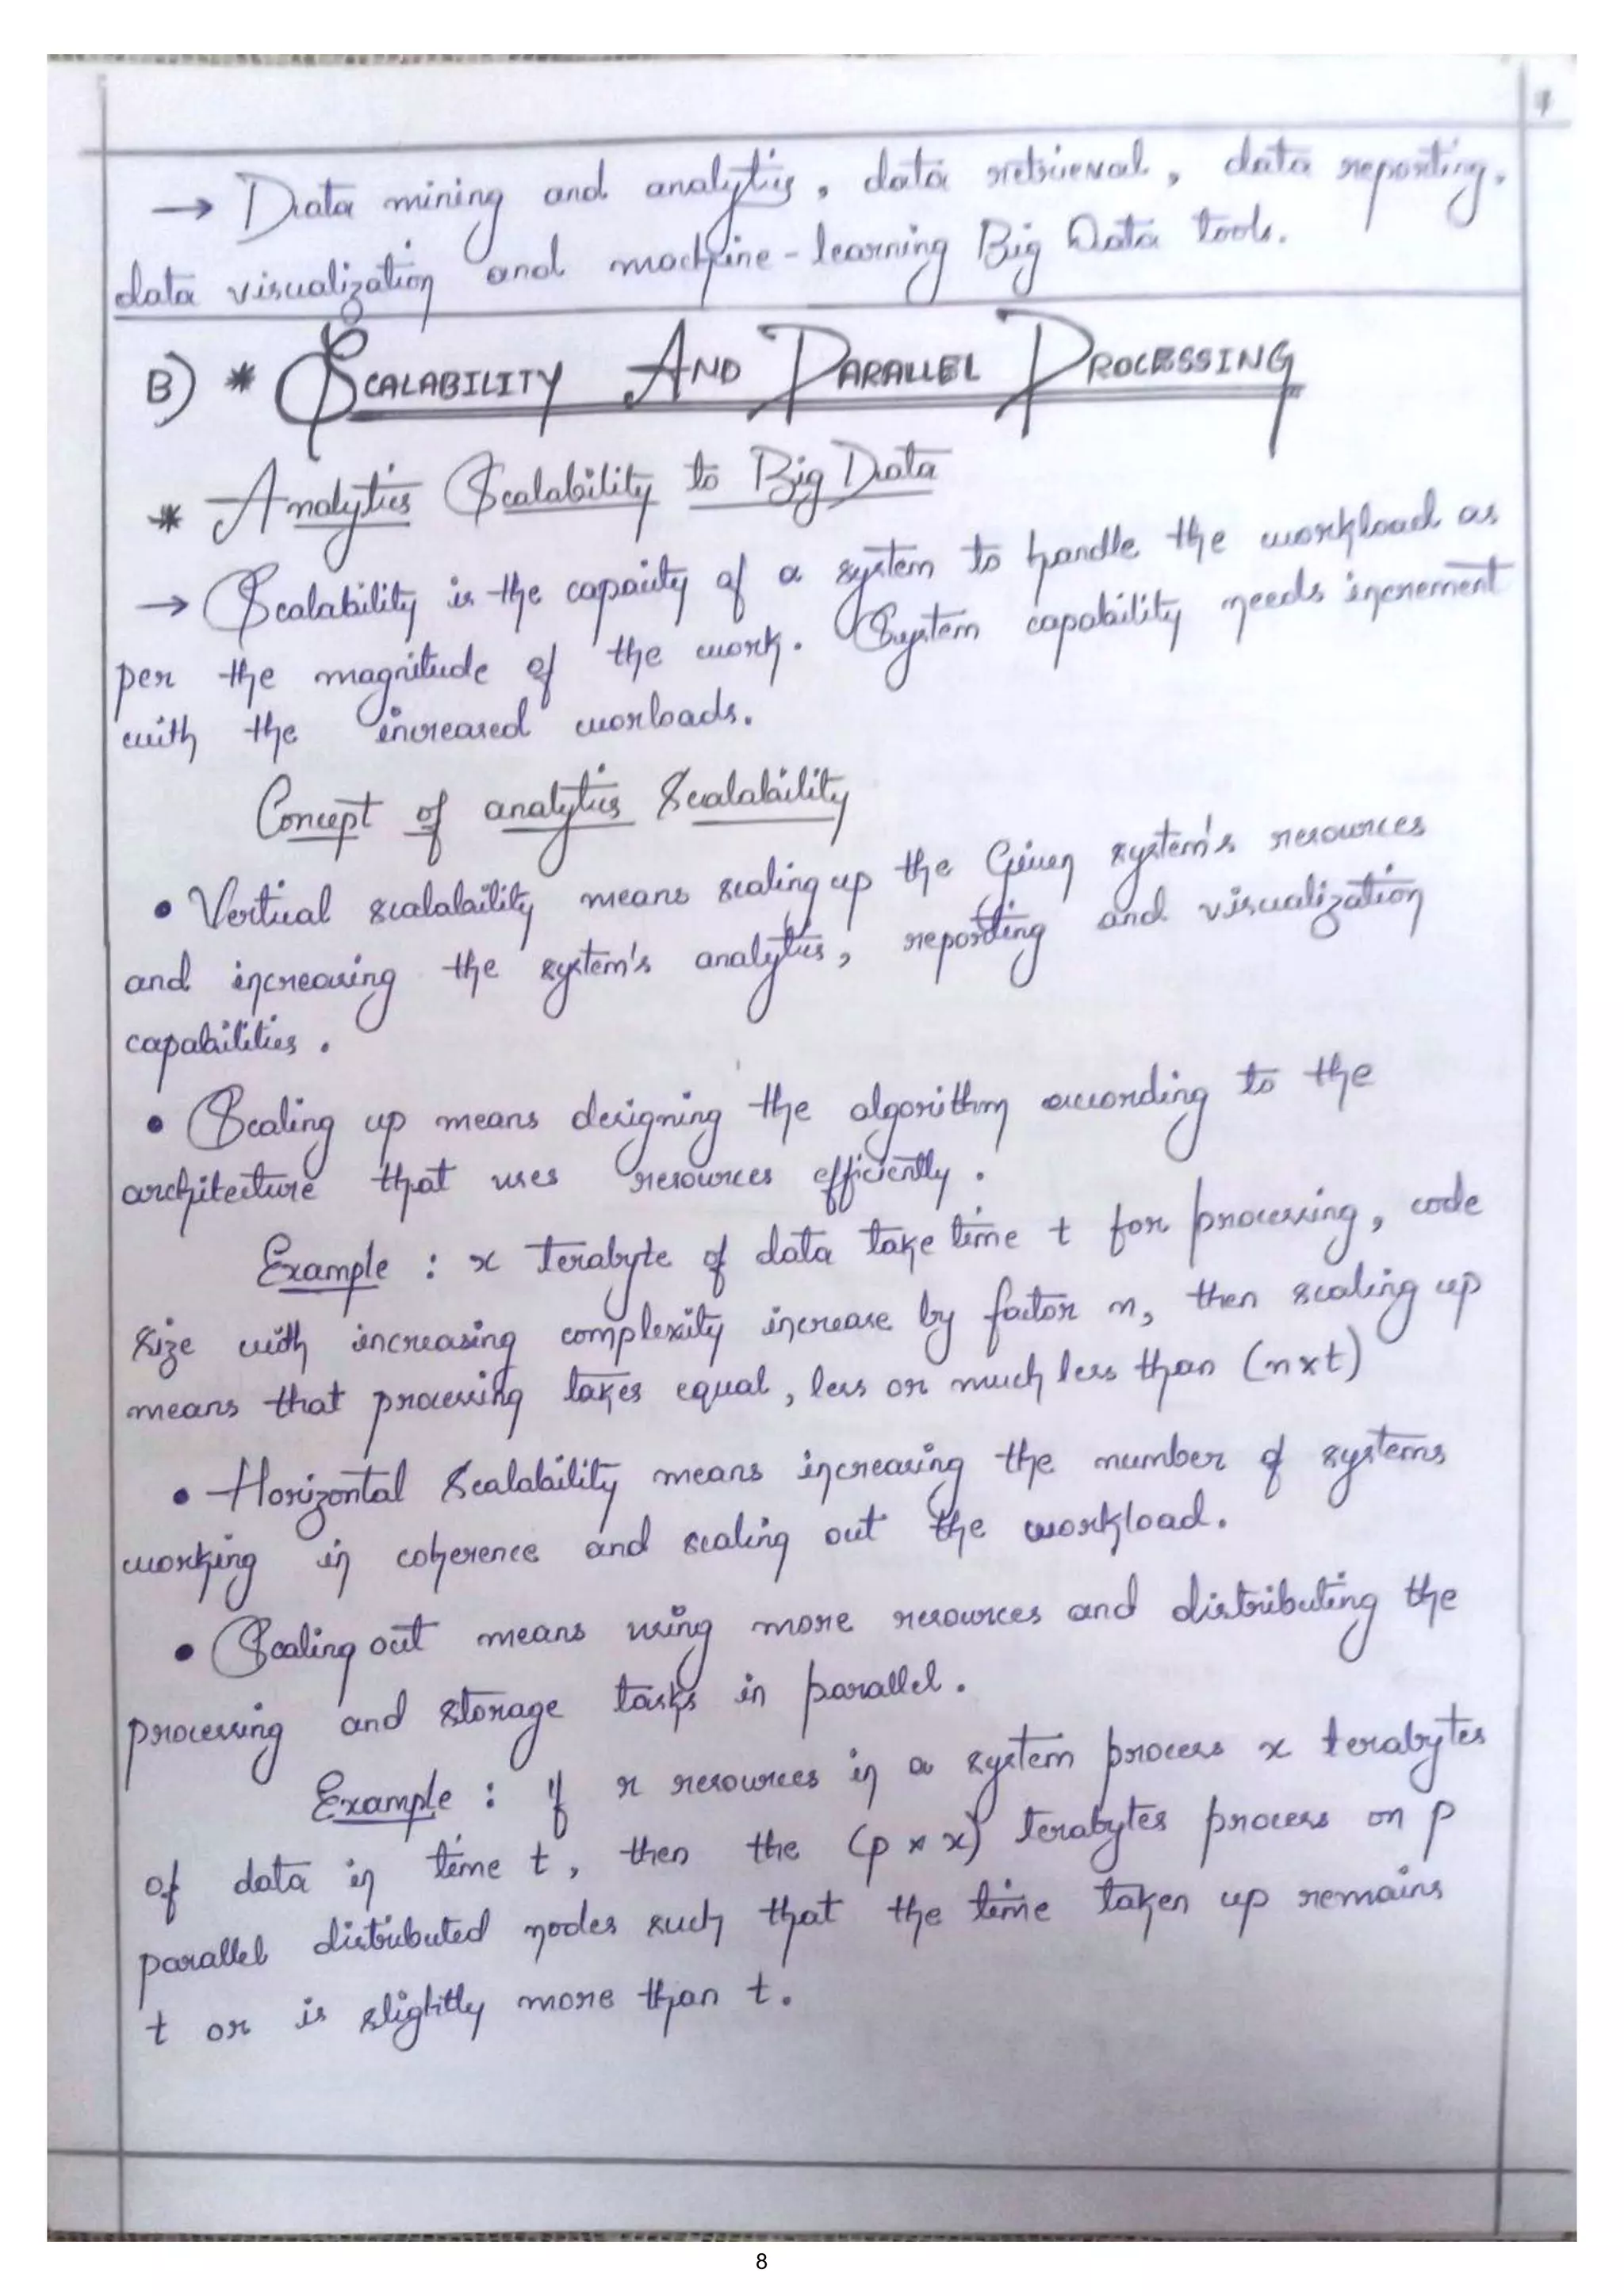 → Data mining and analytics, data retrieval, data reporting,
data visualization and machine-learning Big Data tools.
B) * SCALABILITY AND PARALLEL PROCESSING
* Analytics Scalability to Big Data
→ Scalability is the capacity of a system to handle the workload as
per the magnitude of the work. System capability needs increment
with the increased worloads.
Concept of analytics Scalability
• Vertical scalability means scaling up the Given system's resources
and increasing the system's analytics, reporting and visualization
capabilities.
• Scaling up means designing the algorithm according to the
architecture that uses resources efficiently.
Example : x terabyte of data take time t for processing, code
size with increasing complexity increase by factor n, then scaling up
means that processing takes equal, less or much less than (n×t)
• Horizontal Scalability means increasing the number of systems
working in coherence and scaling out the workload.
• Scaling out means using more resources and distributing the
processing and storage tasks in parallel.
Example : if r resources in a system process x terabytes
of data in time t, then the (p × x) terabytes process on p
parallel distributed nodes such that the time taken up remains
t or is slightly more than t.
8